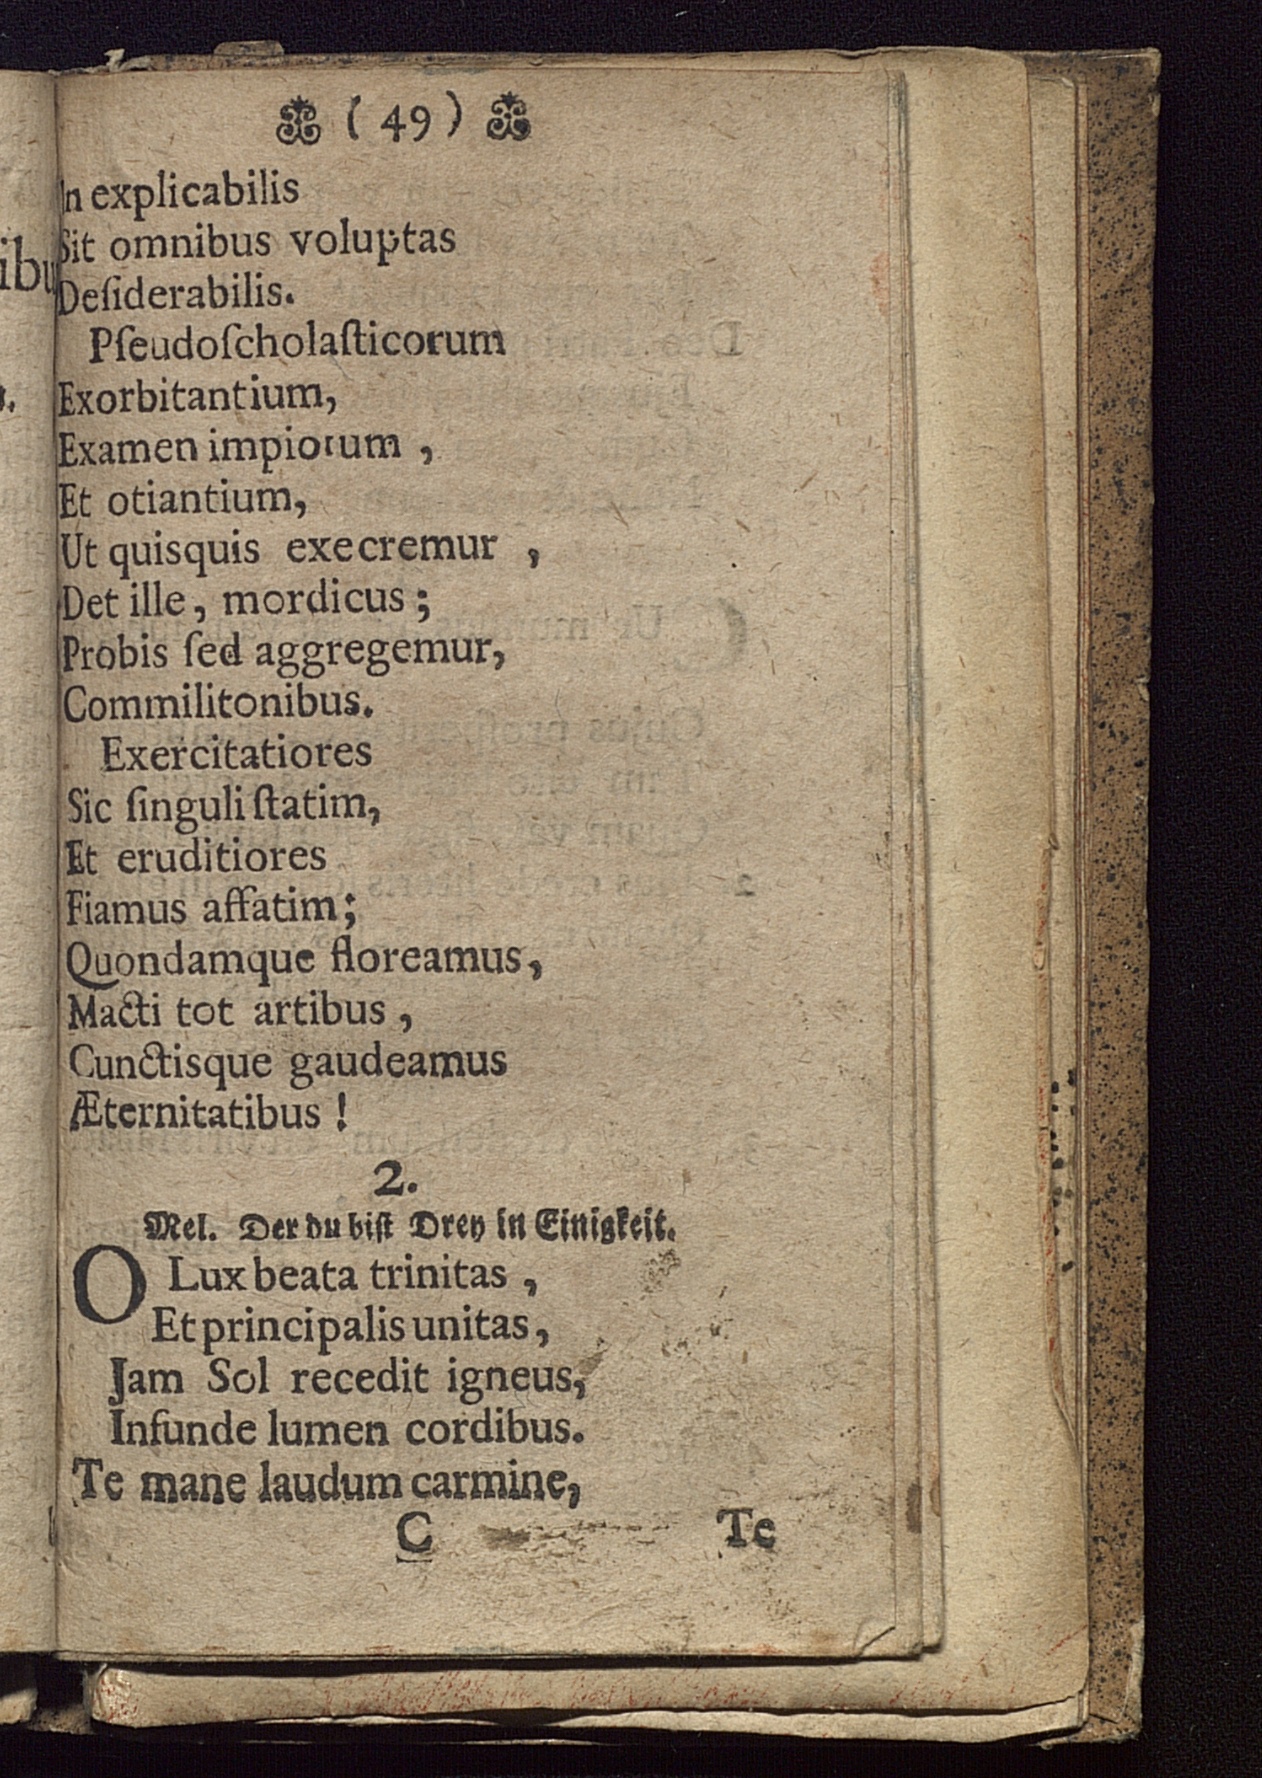 ( 49 )
In explicabilis
Sit omnibus voluptas
Deſiderabilis.
Pſeudoſcholaſticorum
Exorbitantium,
Examen impiorum ,
Et otiantium,
Ut quisquis execremur ,
Det ille, mordicus;
Probis ſed aggregemur,
Commilitonibus.
Exercitatiores
Sic ſinguli ſtatim,
Et eruditiores
Fiamus affatim;
Quondamque floreamus,
Macti tot artibus ,
Cunctisque gaudeamus
Æternitatibus !
2.
Mel. Der du biſt Drey in Einigkeit.
O Lux beata trinitas ,
Et principalis unitas,
Jam Sol recedit igneus,
Infunde lumen cordibus.
Te mane laudum carmine,
C Te